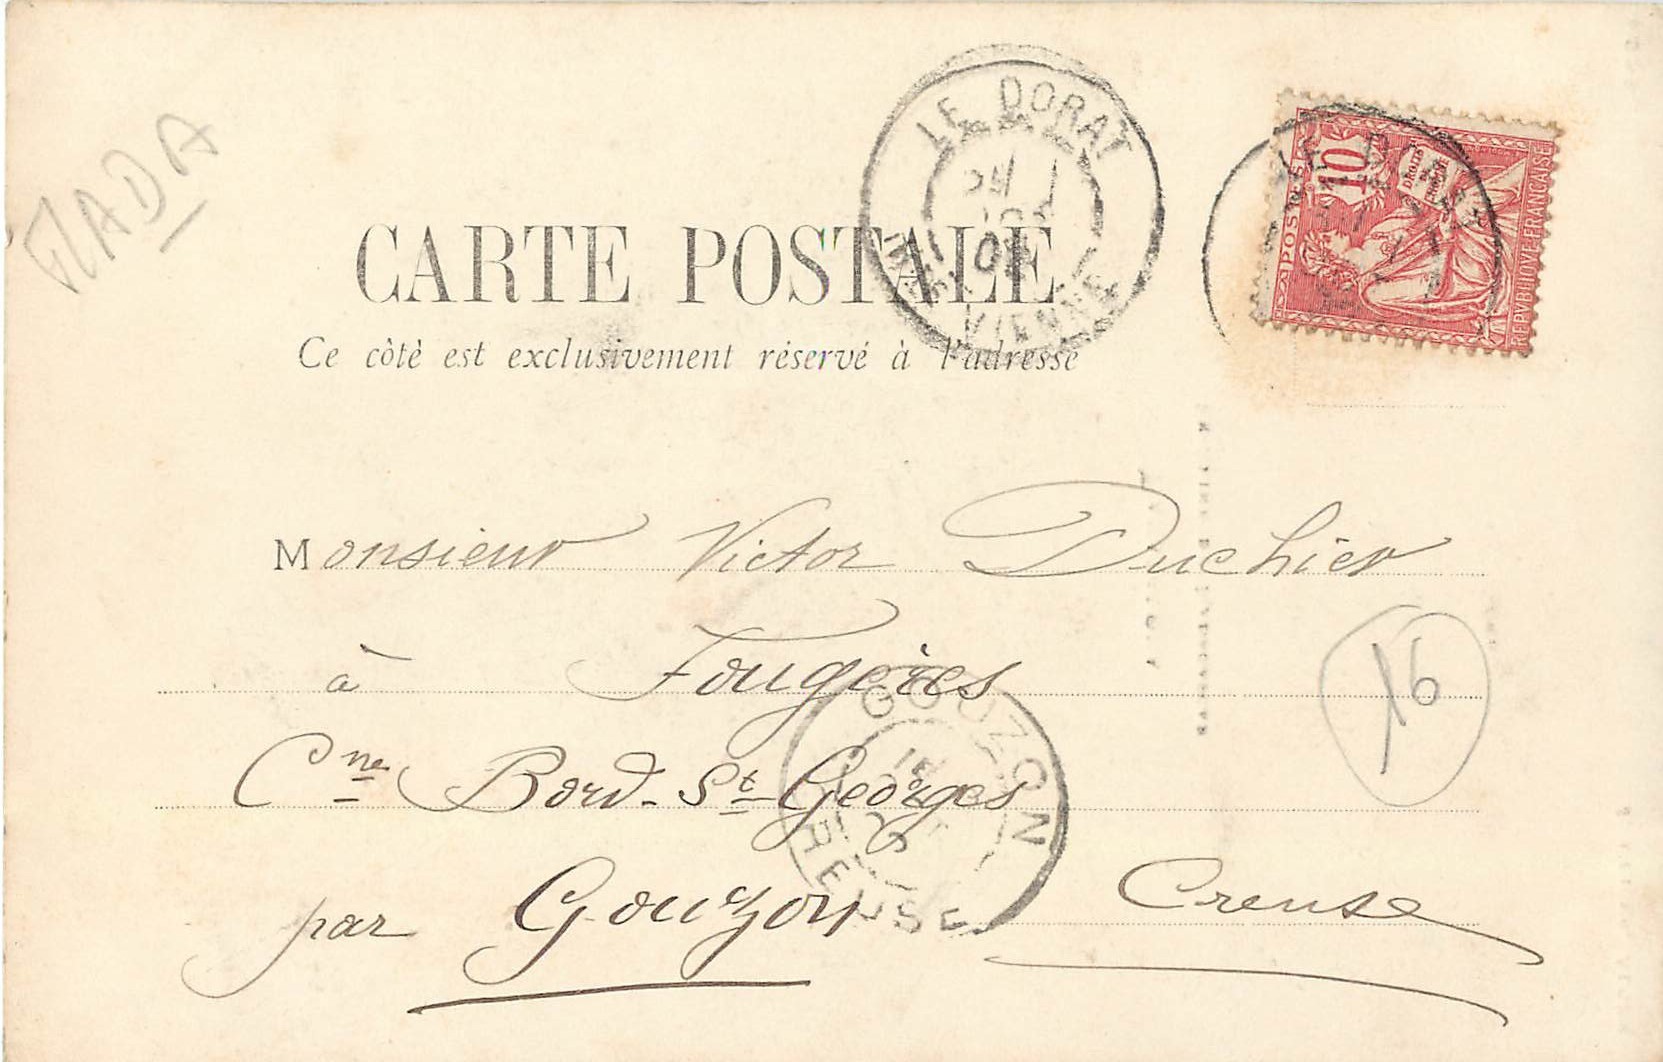 MADA
CARTE POSTALE
Ce côté est exclusivement réservé à l'adresse
LE DORAT
VIENNE
10
POSTES
DROITS DE L'HOMME
REPVBLIQVE FRANÇAISE
LE DORAT
Monsieur Victor Duchier
à Fougères
Cne Bord-St-Georges
par Gouzon Creuse
GOUZON
CREUSE
16